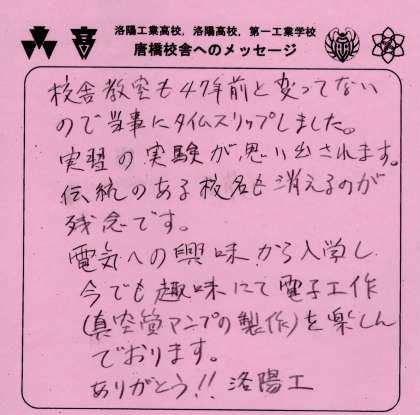 洛陽工業高校，洛陽高校，第一工業学校
唐橋校舎へのメッセージ
校舎教室も47年前と変ってない
ので当事にタイムスリップしました。
実習の実験が思い出されます。
伝統のある校名も消えるのが
残念です。
電気への興味から入学し
今でも趣味にて電子工作
(真空管アンプの製作)を楽しん
でおります。
ありがとう!! 洛陽工